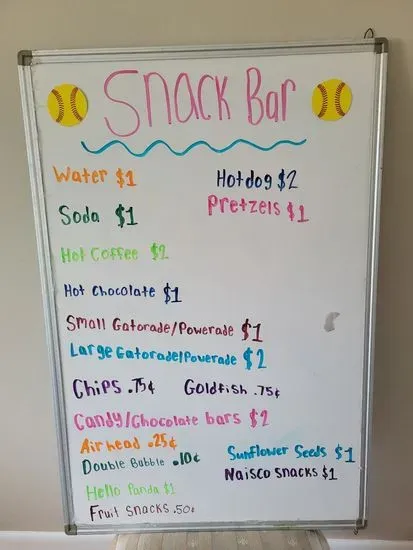 Snack Bar
Water $1
Hotdog $2
Pretzels $1
Soda $1
Hot Coffee $2
Hot Chocolate $1
Small Gatorade/Powerade $1
Large Gatorade/Powerade $2
Chips .75¢ Goldfish .75¢
Candy/Chocolate bars $2
Airhead .25¢
Double Bubble .10¢
Sunflower Seeds $1
Naisco Snacks $1
Hello Panda $1
Fruit Snacks .50¢